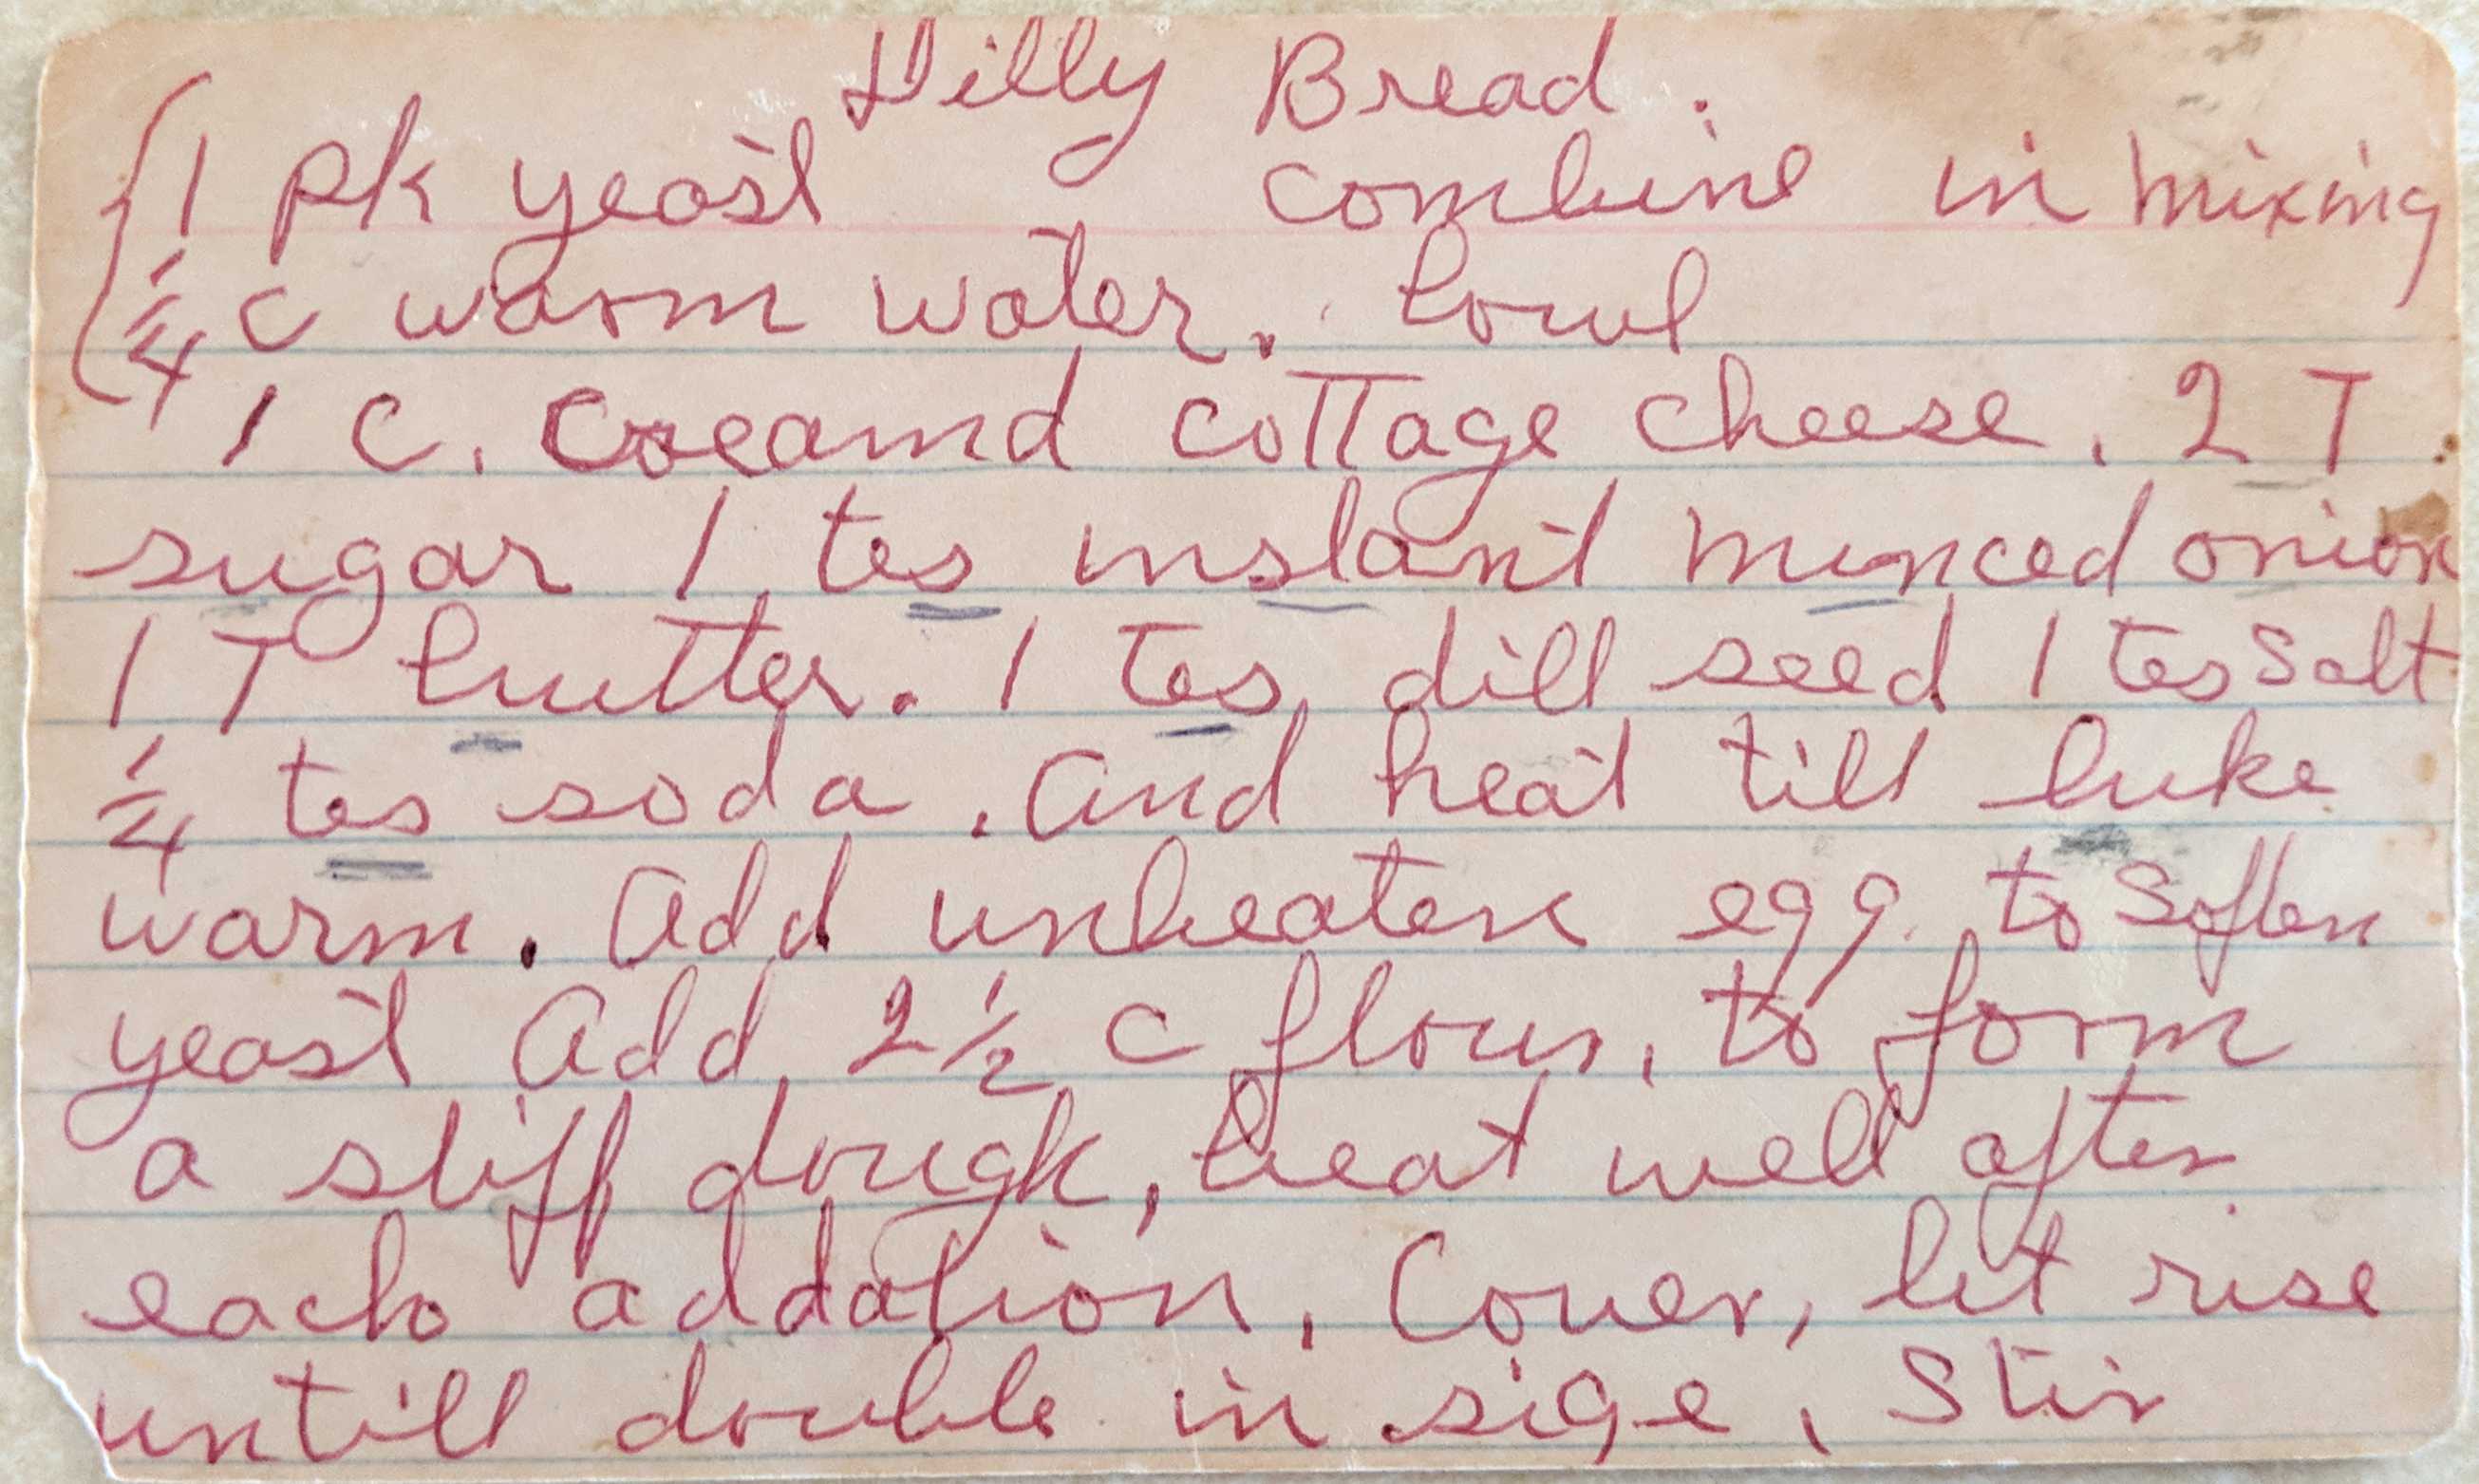 Dilly Bread.
1 pk yeast combine in mixing
1/4 c warm water. bowl
1 c. Creamd cottage cheese. 2 T.
sugar 1 tes instant minced onion
1 T butter. 1 tes dill seed 1 tes salt
1/4 tes soda. and heat till luke
warm. add unbeaten egg. to soften
yeast add 2 1/2 c flour, to form
a stiff dough, beat well after
each addation, Cover, let rise
untill double in size, Stir